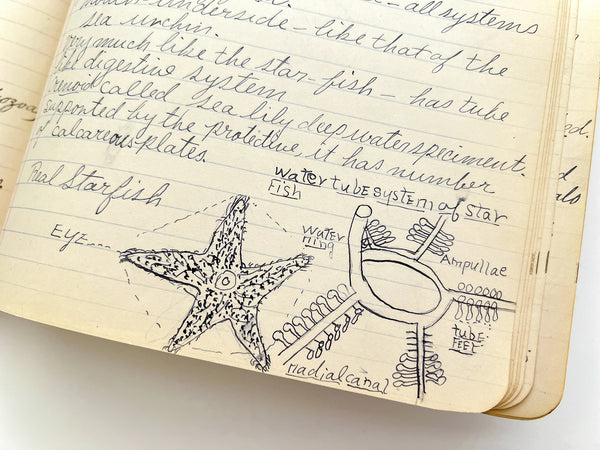 — all systems
underside - like that of the
sea urchin.
very much like the star-fish - has tube
like digestive system
called sea lily deep water speciment.
supported by the protective, it has number
of calcareous plates.
Real Starfish
WATER TUBE SYSTEM of STAR
FISH
EYE
WATER
RING
AMPULLAE
TUBE
FEET
RADIAL CANAL